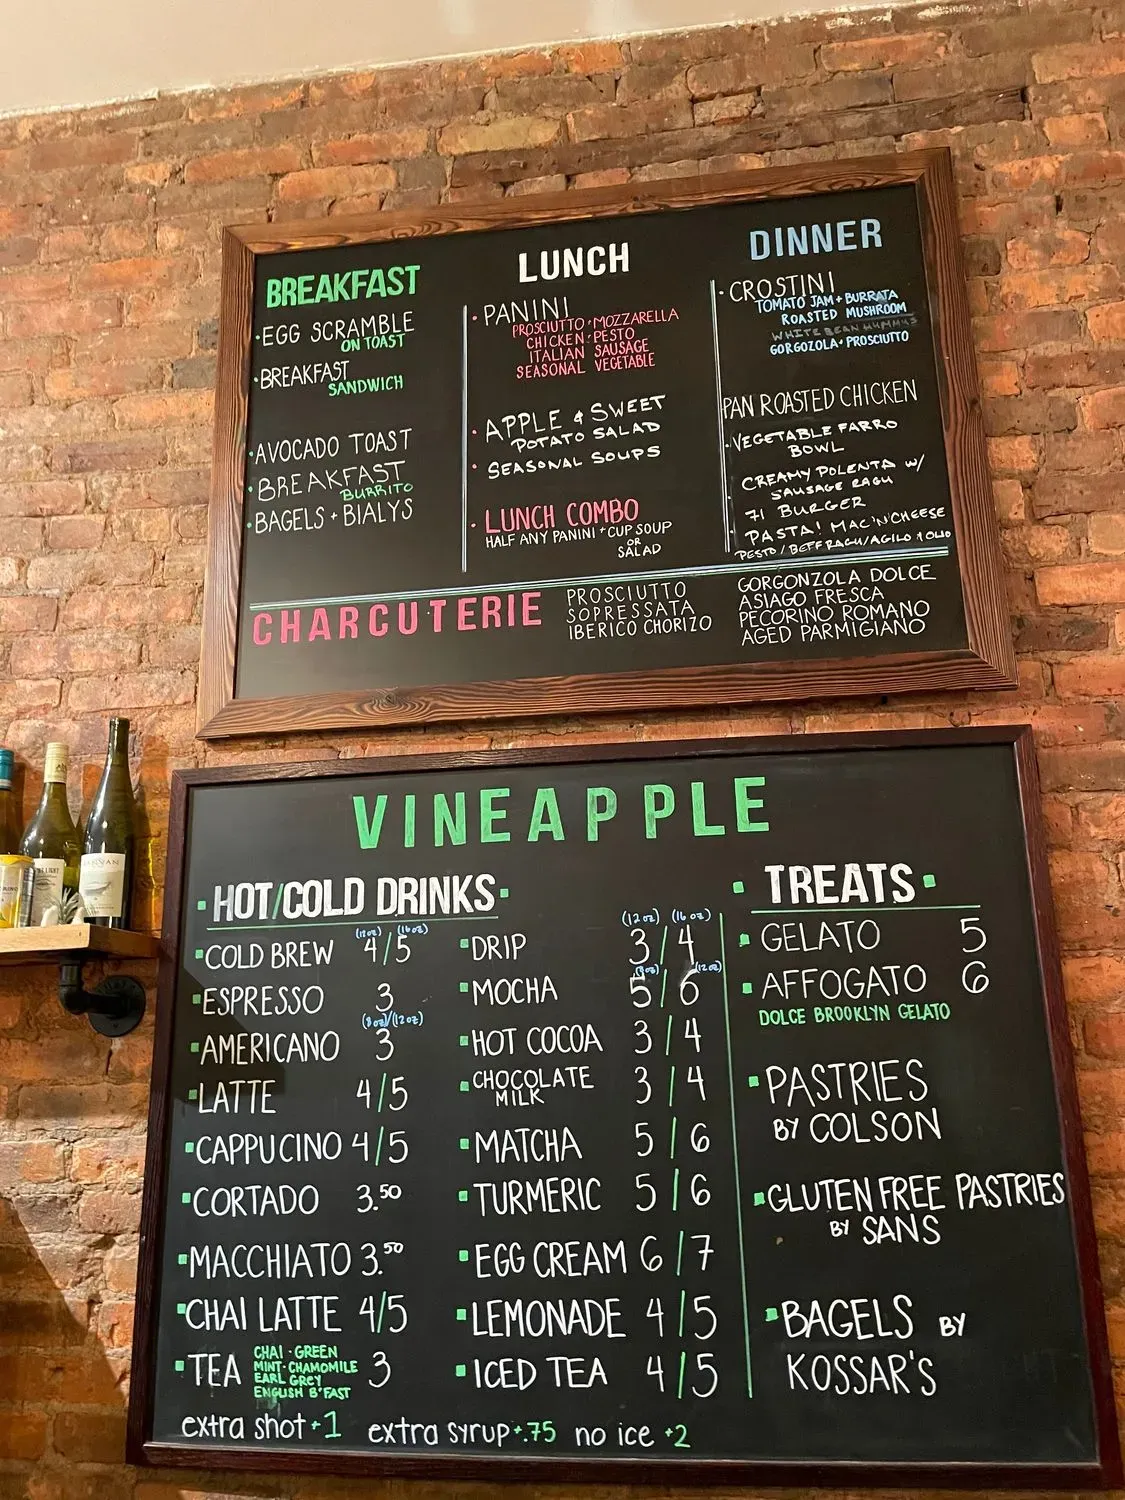 BREAKFAST
• EGG SCRAMBLE
ON TOAST
• BREAKFAST
SANDWICH
• AVOCADO TOAST
• BREAKFAST
BURRITO
• BAGELS + BIALYS
LUNCH
• PANINI
PROSCIUTTO • MOZZARELLA
CHICKEN • PESTO
ITALIAN SAUSAGE
SEASONAL VEGETABLE
• APPLE & SWEET
POTATO SALAD
• SEASONAL SOUPS
• LUNCH COMBO
HALF ANY PANINI + CUP SOUP
OR
SALAD
DINNER
• CROSTINI
TOMATO JAM + BURRATA
ROASTED MUSHROOM
WHITE BEAN HUMMUS
GORGOZOLA • PROSCIUTTO
PAN ROASTED CHICKEN
• VEGETABLE FARRO
BOWL
CREAMY POLENTA W/
SAUSAGE RAGU
• 71 BURGER
• PASTA! MAC'N'CHEESE
PESTO/BEFF RAGU/AGILO & OLIO
CHARCUTERIE
PROSCIUTTO
SOPRESSATA
IBERICO CHORIZO
GORGONZOLA DOLCE
ASIAGO FRESCA
PECORINO ROMANO
AGED PARMIGIANO
VINEAPPLE
• HOT/COLD DRINKS •
(12oz) (16oz)
• COLD BREW 4/5
• ESPRESSO 3
(8oz)/(12oz)
• AMERICANO 3
• LATTE 4/5
• CAPPUCINO 4/5
• CORTADO 3.50
• MACCHIATO 3.50
• CHAI LATTE 4/5
• TEA 3
CHAI • GREEN
MINT • CHAMOMILE
EARL GREY
ENGLISH B'FAST
(12oz) (16oz)
• DRIP 3/4
(8oz) (12oz)
• MOCHA 5/6
• HOT COCOA 3/4
• CHOCOLATE
MILK 3/4
• MATCHA 5/6
• TURMERIC 5/6
• EGG CREAM 6/7
• LEMONADE 4/5
• ICED TEA 4/5
extra shot +1 extra syrup +.75 no ice +2
• TREATS •
• GELATO 5
• AFFOGATO 6
DOLCE BROOKLYN GELATO
• PASTRIES
BY COLSON
• GLUTEN FREE PASTRIES
BY SANS
• BAGELS BY
KOSSAR'S